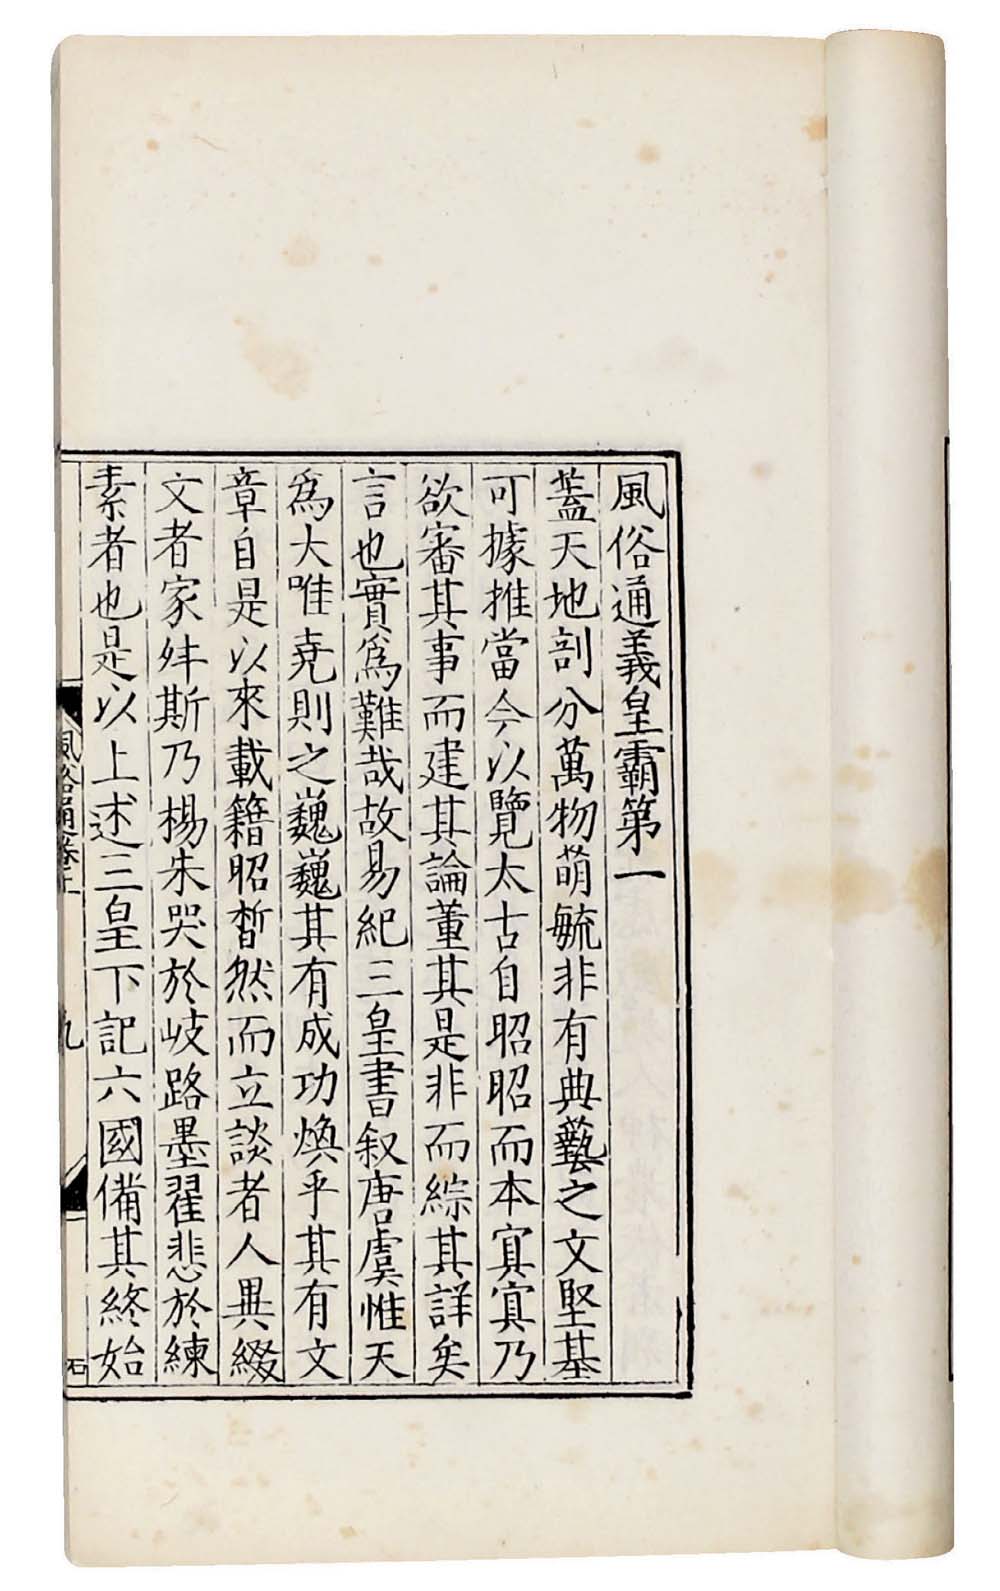 風俗通義皇霸第一
蓋天地剖分萬物萌毓非有典藝之文堅基
可據推當今以覽太古自昭昭而本寘寘乃
欲審其事而建其論董其是非而綜其詳矣
言也實為難哉故易紀三皇書叙唐虞惟天
為大唯堯則之巍巍其有成功煥乎其有文
章自是以來載籍昭晳然而立談者人異綴
文者家舛斯乃楊朱哭於岐路墨翟悲於練
素者也是以上述三皇下記六國備其終始
風俗通卷上
九
石